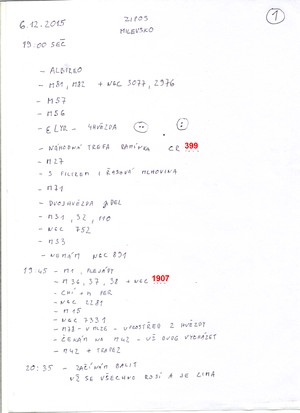 6.12.2015
ZLPO3
MILEVSKO
1
19:00 SEČ
- ALBIREO
- M81, M82 + NGC 3077, 2976
- M57
- M56
- ε LYR - 4HVĚZDA
- NÁHODNÁ TREFA RAMÍNKA CR 399
- M27
- S FILTREM I ŘASOVÁ MLHOVINA
- M71
- DVOJHVĚZDA γ DEL
- M31, 32, 110
- NGC 752
- M33
- NEMÁM NGC 891
19:45 - M1, PLEJÁDY
- M36, 37, 38 + NGC 1907
- CHÍ + h PER
- NGC 2281
- M15
- NGC 7331
- M78 - V MLZE - UPROSTŘED 2 HVĚZDY
- ČEKÁM NA M42 - UŽ DVOU VYCHÁZET
- M42 + TRAPEZ
20:35 - ZAČÍNÁM BALIT
UŽ SE VŠECHNO ROSÍ A JE ZIMA